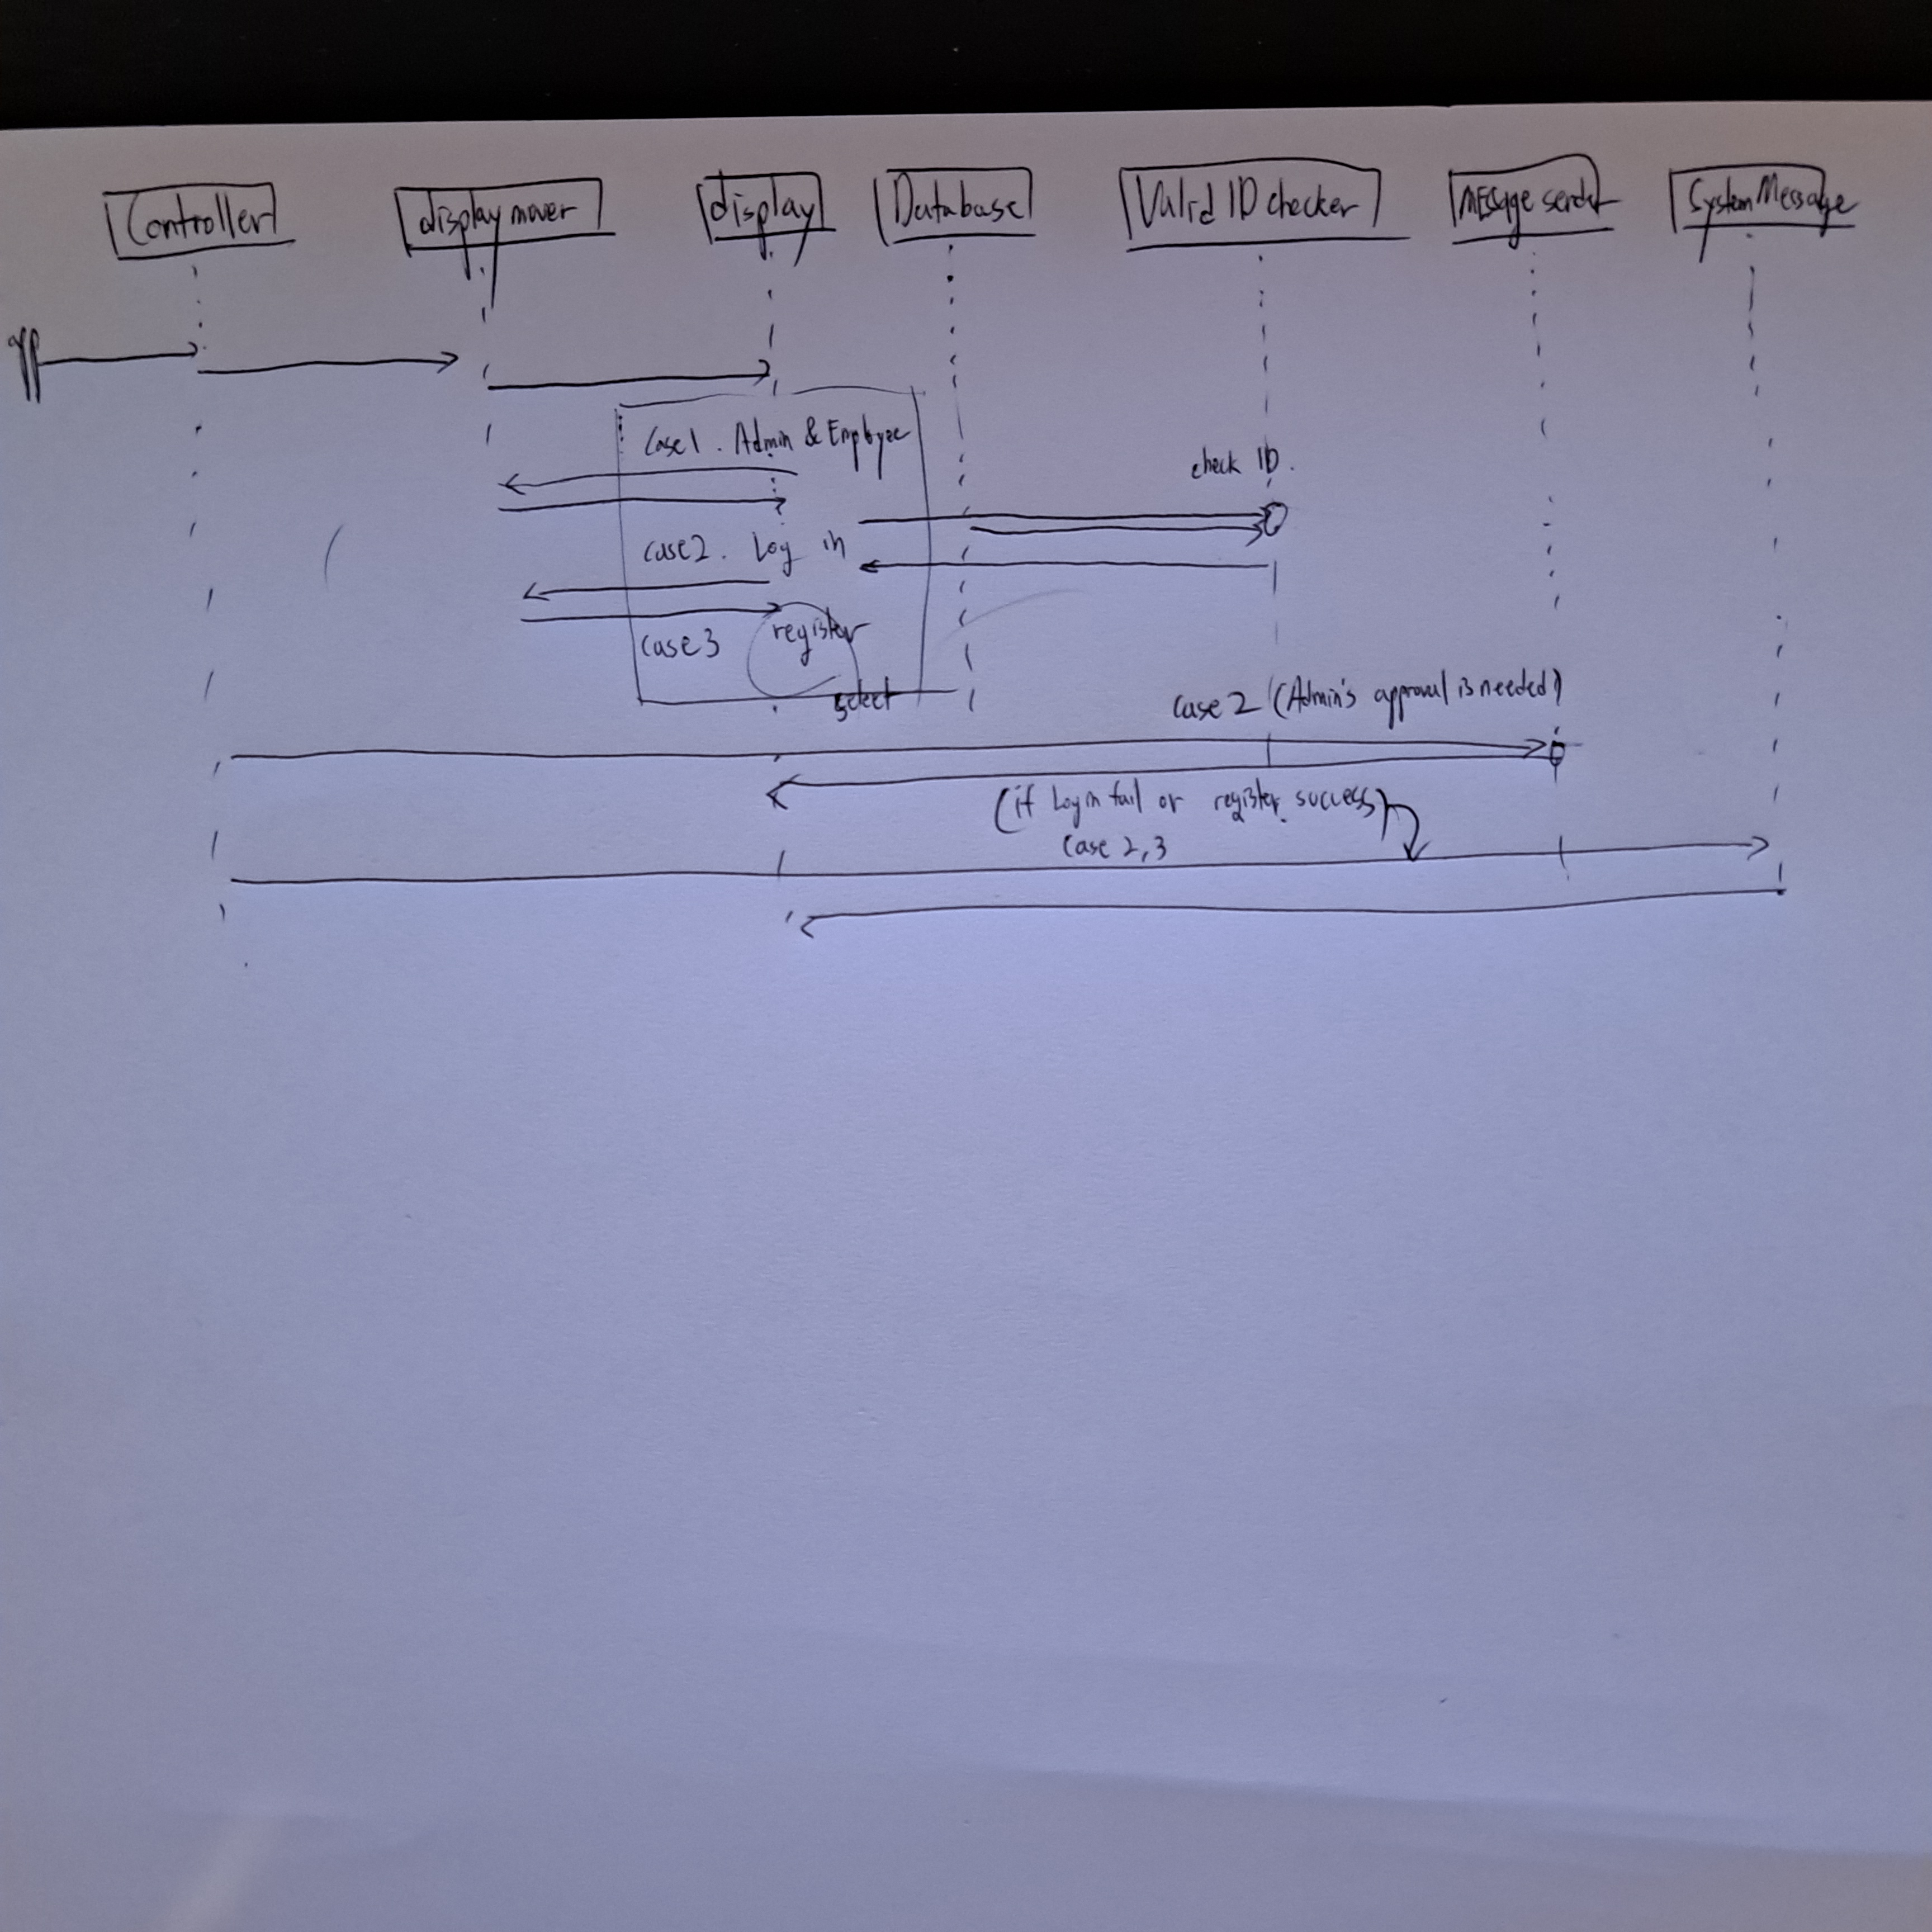 Controller
display mover
display
Database
Valid ID checker
System Message
Case 1. Admin & Employee
check ID.
case 2. Log in
case 3 register
select
case 2 (Admin's approval is needed)
(if Log in fail or register success)
Case 2, 3